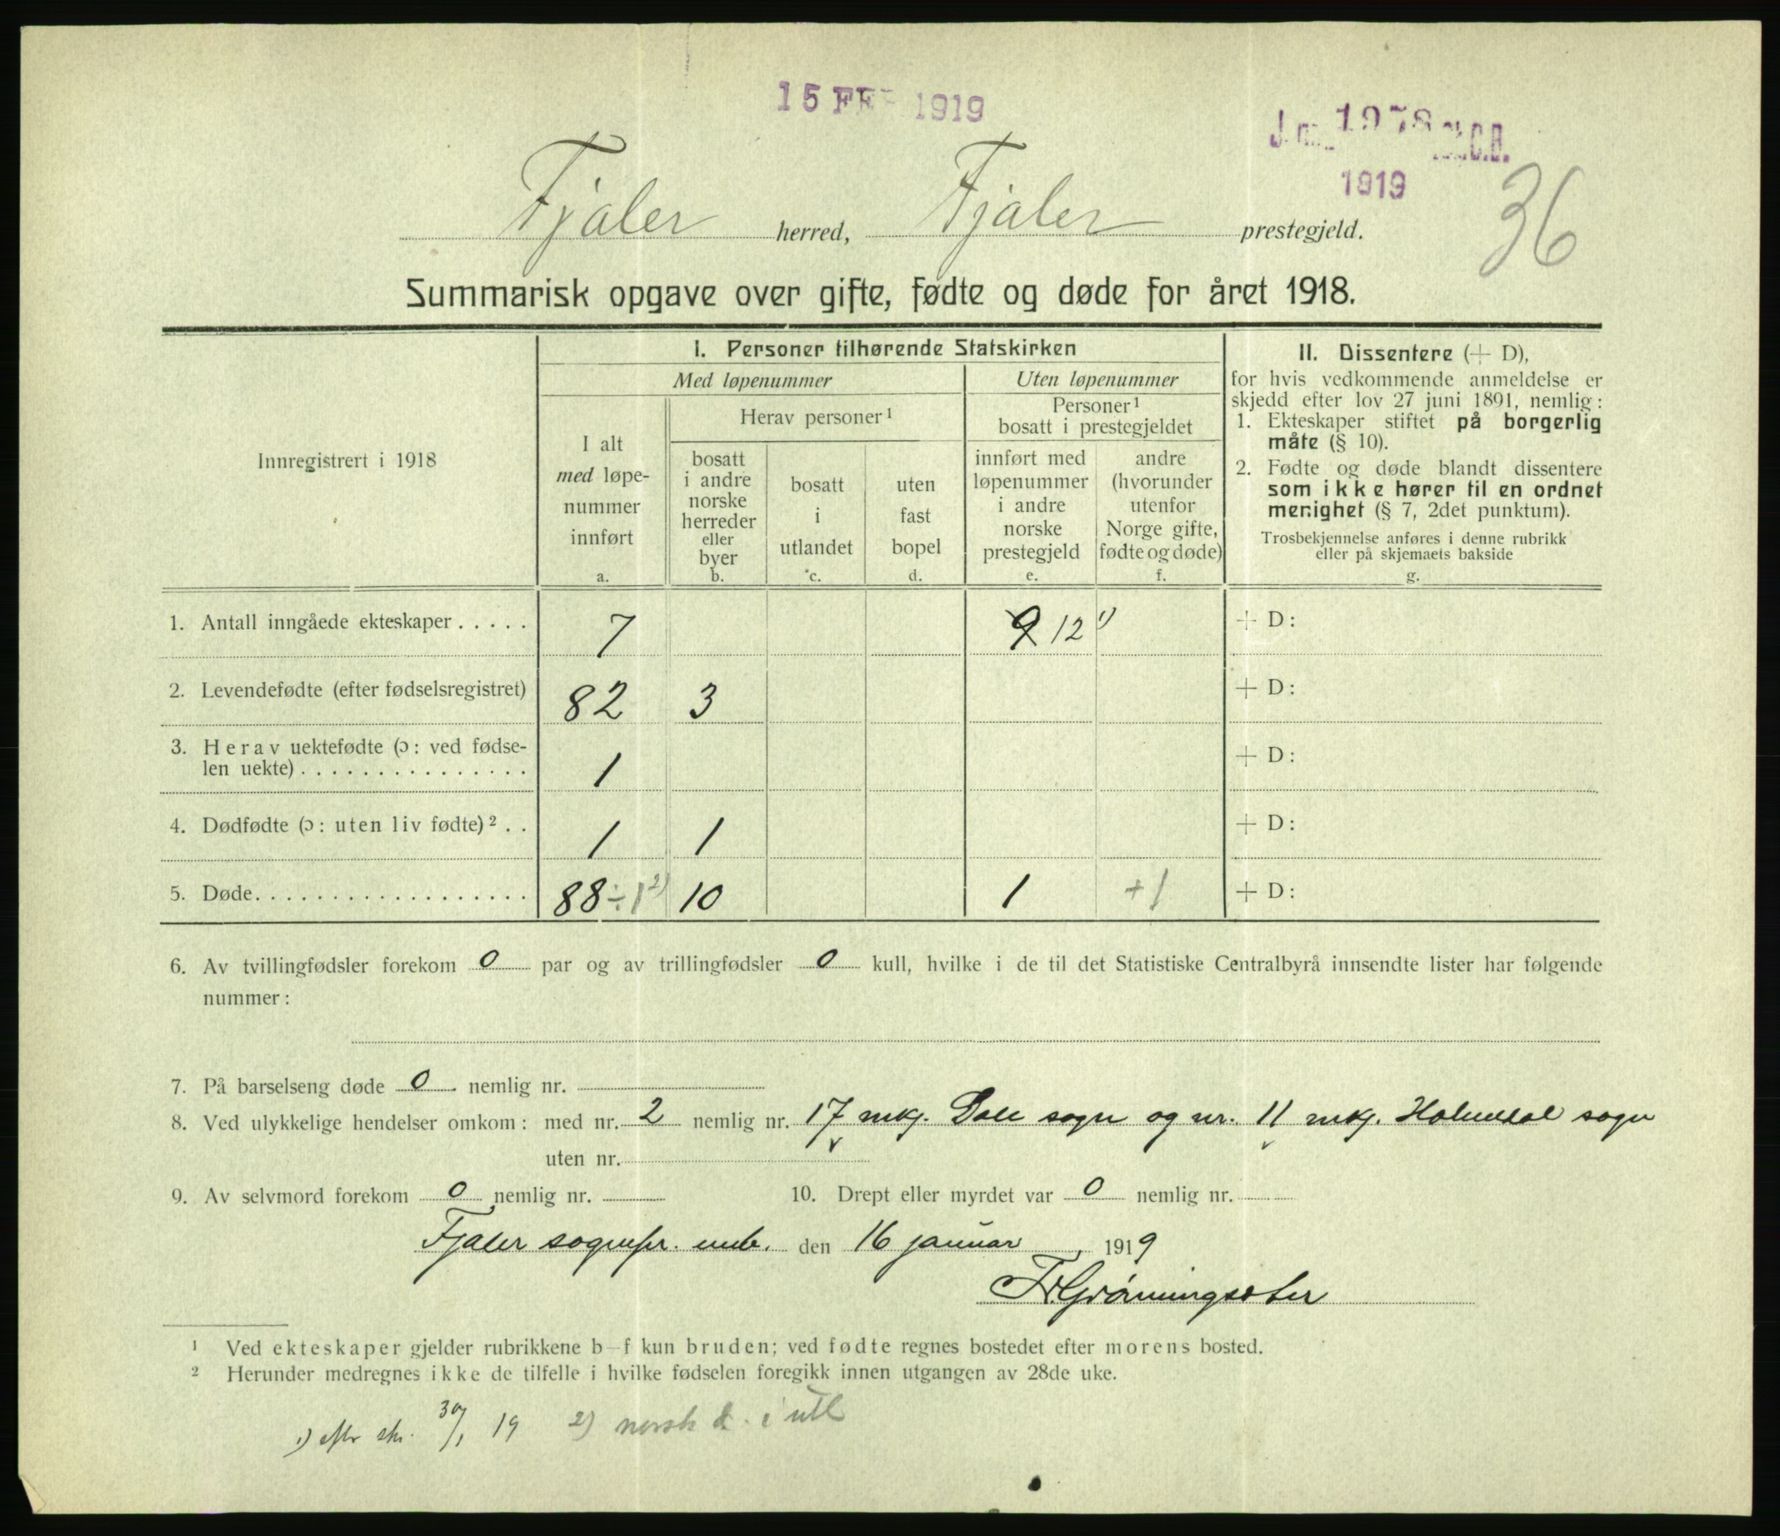 15 FE 1919
J. nr. 1978 C.B.
1919
36
Fjaler herred, Fjaler prestegjeld.
Summarisk opgave over gifte, fødte og døde for året 1918.
Innregistrert i 1918
I. Personer tilhørende Statskirken
Med løpenummer
Uten løpenummer
I alt
med løpe-
nummer
innført
a.
Herav personer¹
bosatt
i andre
norske
herreder
eller
byer
b.
bosatt
i
utlandet
c.
uten
fast
bopel
d.
Personer¹
bosatt i prestegjeldet
innført med
løpenummer
i andre
norske
prestegjeld
e.
andre
(hvorunder
utenfor
Norge gifte,
fødte og døde)
f.
II. Dissentere (+ D),
for hvis vedkommende anmeldelse er
skjedd efter lov 27 juni 1891, nemlig:
1. Ekteskaper stiftet på borgerlig
måte (§ 10).
2. Fødte og døde blandt dissentere
som ikke hører til en ordnet
menighet (§ 7, 2det punktum).
Trosbekjennelse anføres i denne rubrikk
eller på skjemaets bakside
g.
1. Antall inngåede ekteskaper . . . . . 7 9 12 ¹) + D:
2. Levendefødte (efter fødselsregistret) 82 3 + D:
3. Herav uektefødte (ɔ: ved fødse-
len uekte) . . . . . . . . . . . . . . . 1 + D:
4. Dødfødte (ɔ: uten liv fødte)² . . 1 1 + D:
5. Døde. . . . . . . . . . . . . . . . . . 88 ÷1 ²) 10 1 +1 + D:
6. Av tvillingfødsler forekom 0 par og av trillingfødsler 0 kull, hvilke i de til det Statistiske Centralbyrå innsendte lister har følgende
nummer:
7. På barselseng døde 0 nemlig nr.
8. Ved ulykkelige hendelser omkom: med nr. 2 nemlig nr. 17 mkj. Dale sogn og nr. 11 mkj. Holmedal sogn
uten nr.
9. Av selvmord forekom 0 nemlig nr. 10. Drept eller myrdet var 0 nemlig nr.
Fjaler sognepr. emb. den 16 januar 1919
Fr. Grøningsæter
¹ Ved ekteskaper gjelder rubrikkene b–f kun bruden; ved fødte regnes bostedet efter morens bosted.
² Herunder medregnes ikke de tilfelle i hvilke fødselen foregikk innen utgangen av 28de uke.
1) efter skr. 30/1 19 2) norsk d. i utl